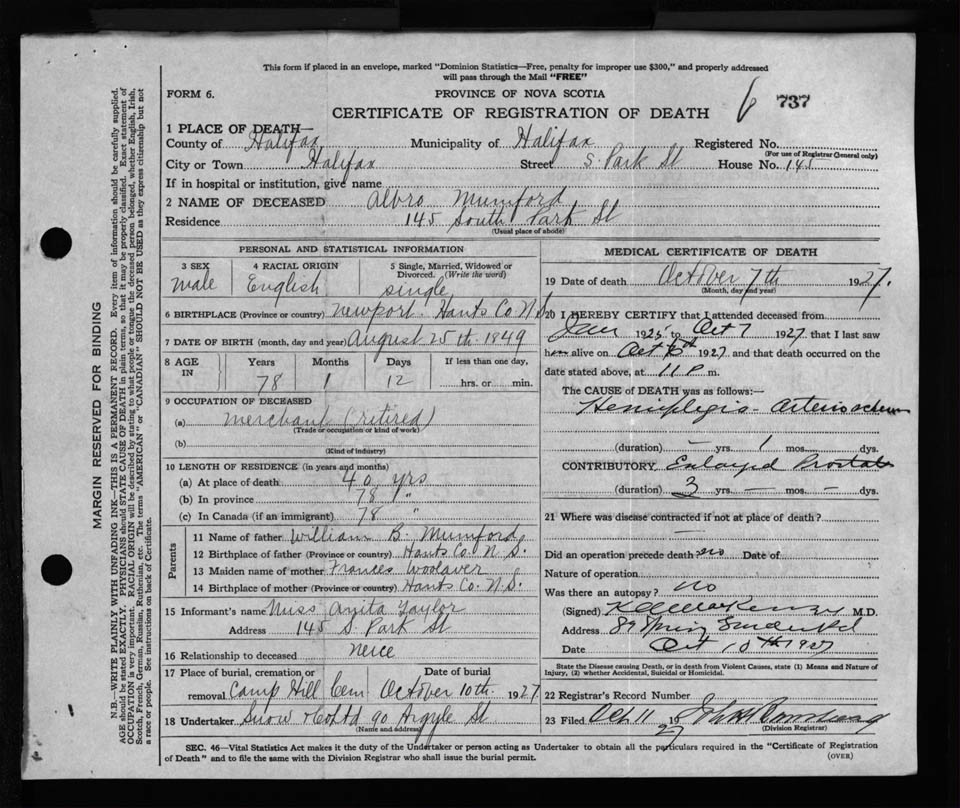 This form if placed in an envelope, marked "Dominion Statistics—Free, penalty for improper use $300," and properly addressed
will pass through the Mail "FREE"
FORM 6.
PROVINCE OF NOVA SCOTIA
6 737
CERTIFICATE OF REGISTRATION OF DEATH
1 PLACE OF DEATH—
County of Halifax Municipality of Halifax Registered No.
(For use of Registrar General only)
City or Town Halifax Street S Park St House No. 145
If in hospital or institution, give name
2 NAME OF DECEASED Albro Mumford
Residence 145 South Park St
(Usual place of abode)
PERSONAL AND STATISTICAL INFORMATION
3 SEX male
4 RACIAL ORIGIN English
5 Single, Married, Widowed or Divorced. (Write the word) single
6 BIRTHPLACE (Province or country) Newport Hants Co N.S.
7 DATE OF BIRTH (month, day and year) August 25th 1849
8 AGE IN Years Months Days If less than one day,
78 1 12 hrs. or min.
9 OCCUPATION OF DECEASED
(a) Merchant (retired)
(Trade or occupation or kind of work)
(b)
(Kind of industry)
10 LENGTH OF RESIDENCE (in years and months)
(a) At place of death 40 yrs
(b) In province 78 "
(c) In Canada (if an immigrant) 78 "
Parents
11 Name of father William B. Mumford
12 Birthplace of father (Province or country) Hants Co N.S.
13 Maiden name of mother Frances Woolaver
14 Birthplace of mother (Province or country) Hants Co. N.S.
15 Informant's name Miss Anita Taylor
Address 145 S. Park St
16 Relationship to deceased neice
17 Place of burial, cremation or removal Camp Hill Cem Date of burial October 10th 1927
18 Undertaker Snow & Co Ltd 90 Argyle St
(Name and address)
MEDICAL CERTIFICATE OF DEATH
19 Date of death October 7th 1927.
(Month, day and year)
20 I HEREBY CERTIFY that I attended deceased from
Jan 1925 to Oct 7 1927 that I last saw
h alive on Oct 6th 1927 and that death occurred on the
date stated above, at 11 P m.
The CAUSE OF DEATH was as follows:—
Hemiplegia
(duration) — yrs. 1 mos. — dys.
CONTRIBUTORY Enlarged Prostate
(duration) 3 yrs. — mos. — dys.
21 Where was disease contracted if not at place of death? —
Did an operation precede death? no Date of
Nature of operation
Was there an autopsy? no
(Signed) MacKenzie M.D.
Address 89 Spring Garden Rd
Date Oct 10th 1927
State the Disease causing Death, or in death from Violent Causes, state (1) Means and Nature of
Injury, (2) whether Accidental, Suicidal or Homicidal.
22 Registrar's Record Number
23 Filed Oct 11 1927
(Division Registrar)
SEC. 46—Vital Statistics Act makes it the duty of the Undertaker or person acting as Undertaker to obtain all the particulars required in the "Certificate of Registration
of Death" and to file the same with the Division Registrar who shall issue the burial permit.
(OVER)
MARGIN RESERVED FOR BINDING
N.B.—WRITE PLAINLY WITH UNFADING INK—THIS IS A PERMANENT RECORD. Every item of information should be carefully supplied.
AGE should be stated EXACTLY. PHYSICIANS should STATE CAUSE OF DEATH in plain terms, so that it may be properly classified. Exact statement of
OCCUPATION is very important. RACIAL ORIGIN will be described by stating to what people or tongue the deceased person belonged, whether English, Irish,
Scotch, French, German, Russian, Ruthenian, etc. The terms "AMERICAN" or "CANADIAN" SHOULD NOT BE USED as they express citizenship but not
a race or people. See instructions on back of Certificate.